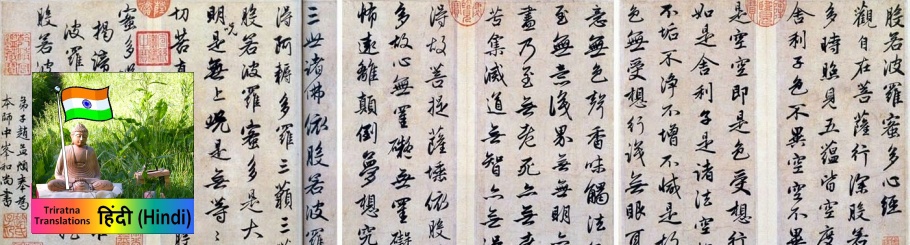 般若波羅蜜多心經
觀自在菩薩行深般若
多時照見五蘊皆空度
舍利子色不異空空不
是空即是色受想行
如是舍利子是諸法空
不垢不淨不增不減是故
色無受想行識無眼耳
意無色聲香味觸法
至無意識界無無明
盡乃至無老死亦無
苦集滅道無智亦無
得故菩提薩埵依般
多故心無罣礙無罣礙
怖遠離顛倒夢想究
三世諸佛依般若波羅
得阿耨多羅三藐三
般若波羅蜜多是大
明呪是無上呪是無等
切苦真
蜜多
揭諦
波羅
般若
弟子趙孟頫奉為
本師中峯和尚書
Triratna
Translations
हिंदी (Hindi)